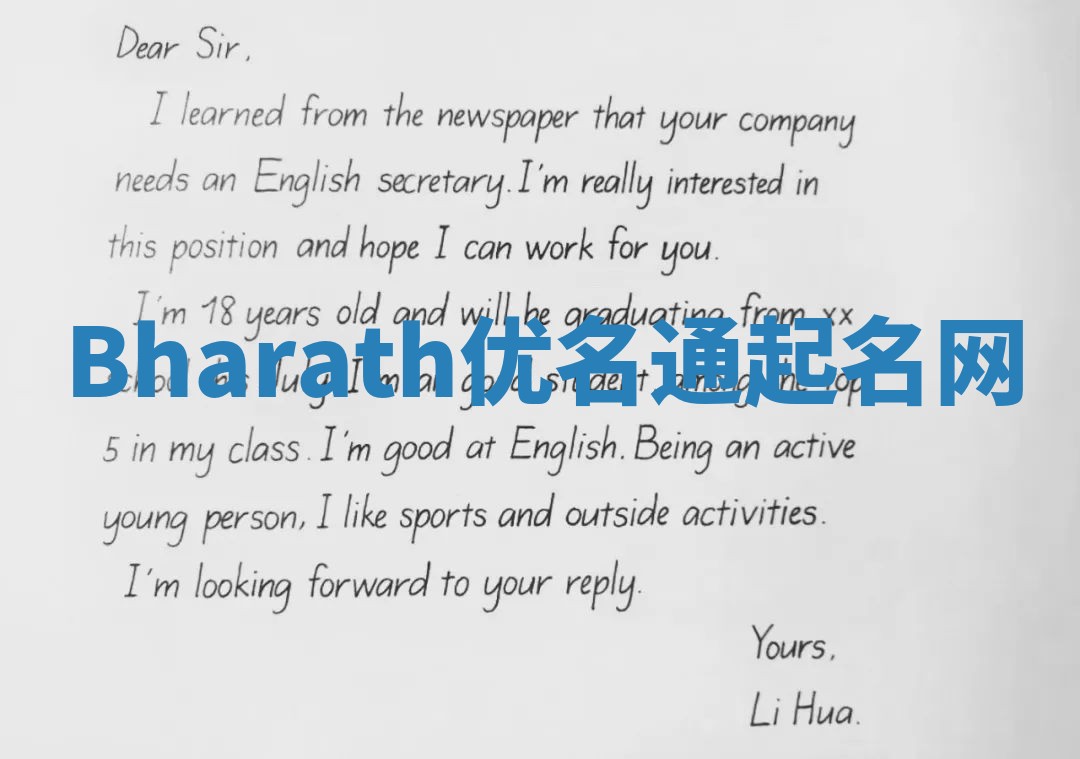 Dear Sir,
I learned from the newspaper that your company
needs an English secretary. I'm really interested in
this position and hope I can work for you.
I'm 18 years old and will be graduating from xx
Bharath优名通起名网
school this July. I'm a good student, among the top
5 in my class. I'm good at English. Being an active
young person, I like sports and outside activities.
I'm looking forward to your reply.
Yours,
Li Hua.